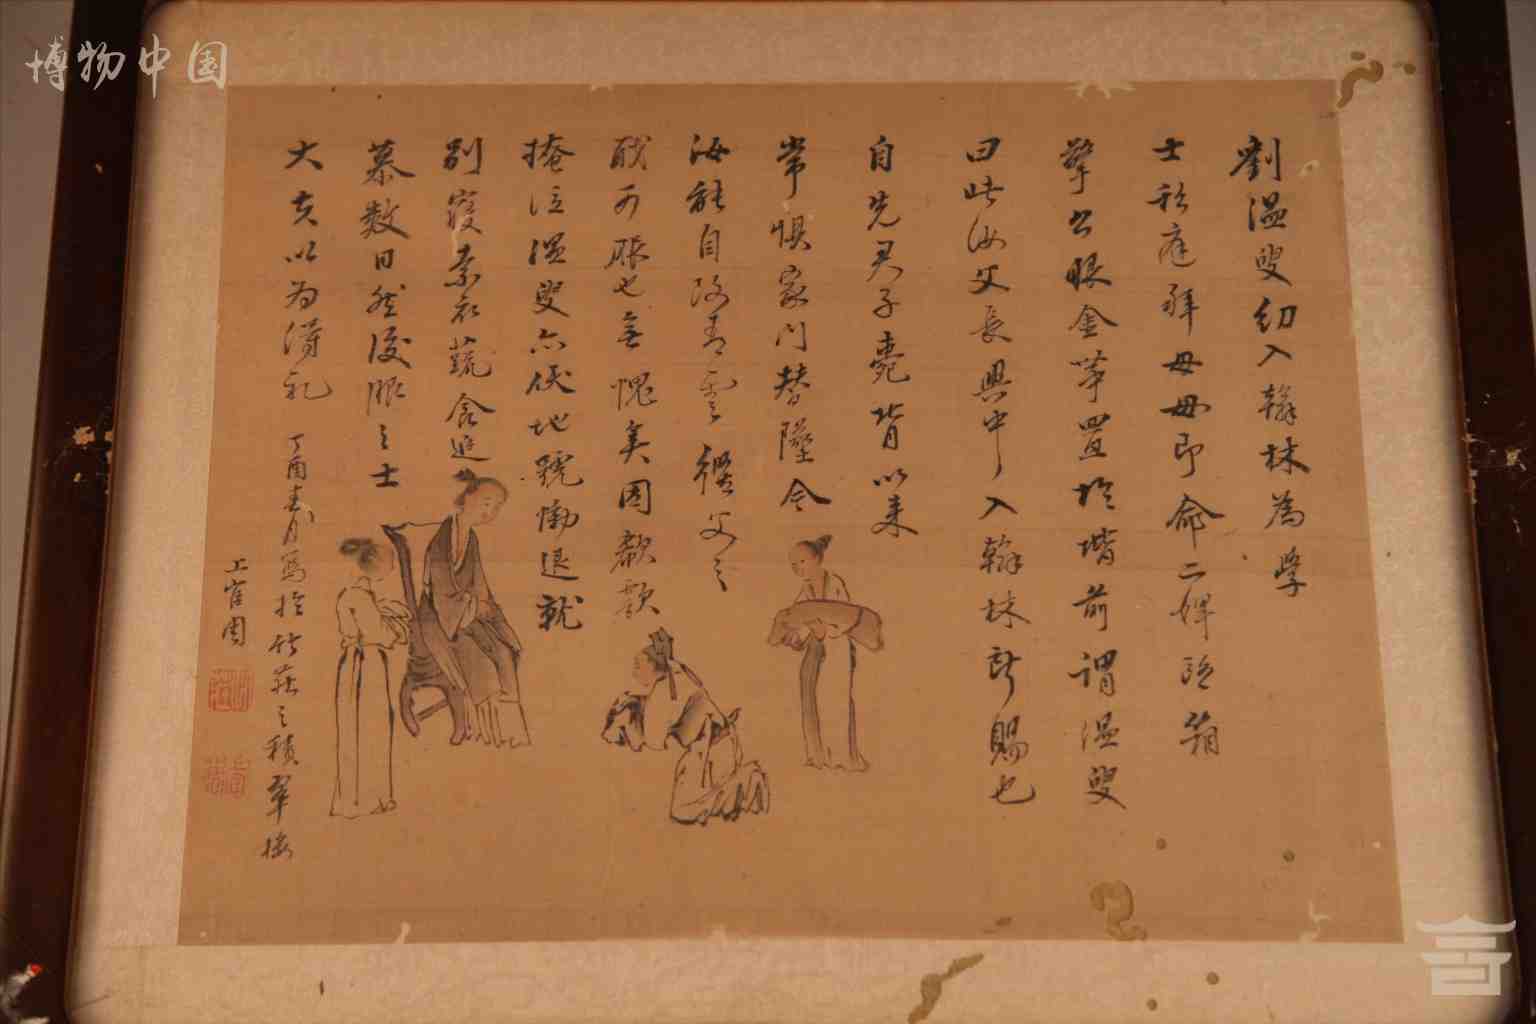 博物中国
劉溫叟幼入翰林為學
士私庭拜母母即命二婢
擎公服金帶置於堦前謂溫叟
曰此汝父長興中入翰林所賜也
自先君子薨背以來
常懼家門替墜今
汝能自致青雲繼父之
職可服也無愧矣因歔欷
掩泣溫叟亦伏地號慟退就
別寢素衣蔬食追
慕數日然後服之士
大夫以為得礼
丁酉春月寫於竹莊之積翠樓
上官周